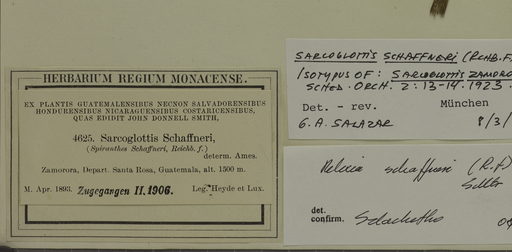 HERBARIUM REGIUM MONACENSE.
EX PLANTIS GUATEMALENSIBUS NECNON SALVADORENSIBUS
HONDURENSIBUS NICARAGUENSIBUS COSTARICENSIBUS,
QUAS EDIDIT JOHN DONNELL SMITH,
4625. Sarcoglottis Schaffneri,
(Spiranthes Schaffneri, Reichb. f.)
determ. Ames.
Zamorora, Depart. Santa Rosa, Guatemala, alt. 1500 m.
M. Apr. 1893. Zugegangen II. 1906. Leg. Heyde et Lux.
SARCOGLOTTIS SCHAFFNERI (RCHB.F.
ISOTYPUS OF: SARCOGLOTTIS ZAMORO
SCHED. ORCH. 2: 13-14. 1923.
Det. - rev. München
G. A. SALAZAR 8/3/
Pelexia schaffneri (R.f.)
det.
confirm.